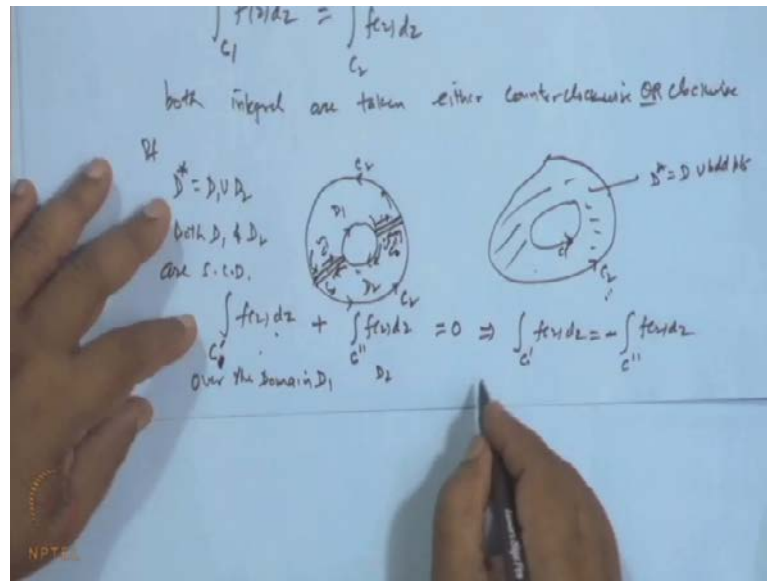 ∫_{C1} f(z)dz = ∫_{C2} f(z)dz
both integral are taken either counterclockwise OR clockwise
Pf
D* = D1 ∪ D2
both D1 & D2
are S.C.D.
C2
D1
D2
C2
D* = D ∪ bdd pts
C1
C2
∫_{C'} f(z)dz + ∫_{C''} f(z)dz = 0 ⇒ ∫_{C'} f(z)dz = -∫_{C''} f(z)dz
over the Domain D1 D2
NPTEL